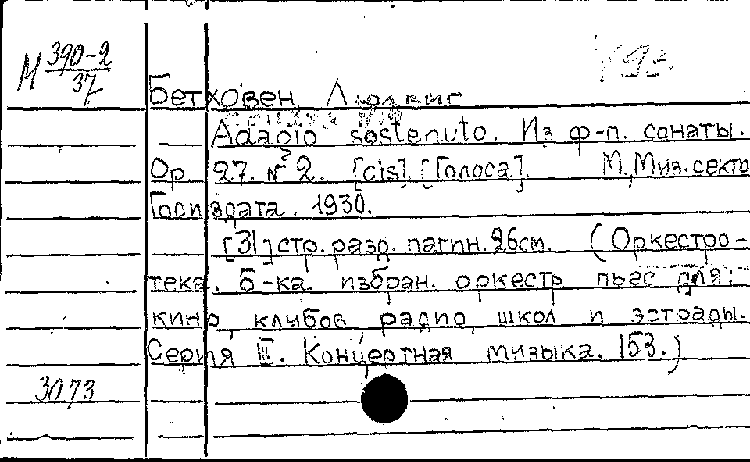 М 390-2
37
Бетховен, Людвиг
Adagio sostenuto. Из ф-п. сонаты.
Op. 27. № 2. [cis]. [Голоса]. М., Муз. секто
Госиздата. 1930.
[31] стр. разд. пагин. 26см. (Оркестро-
тека. Б-ка. избран. оркестр. пьес для
кино, клубов, радио, школ и эстрады.
Серия III. Концертная музыка. 153.)
3073